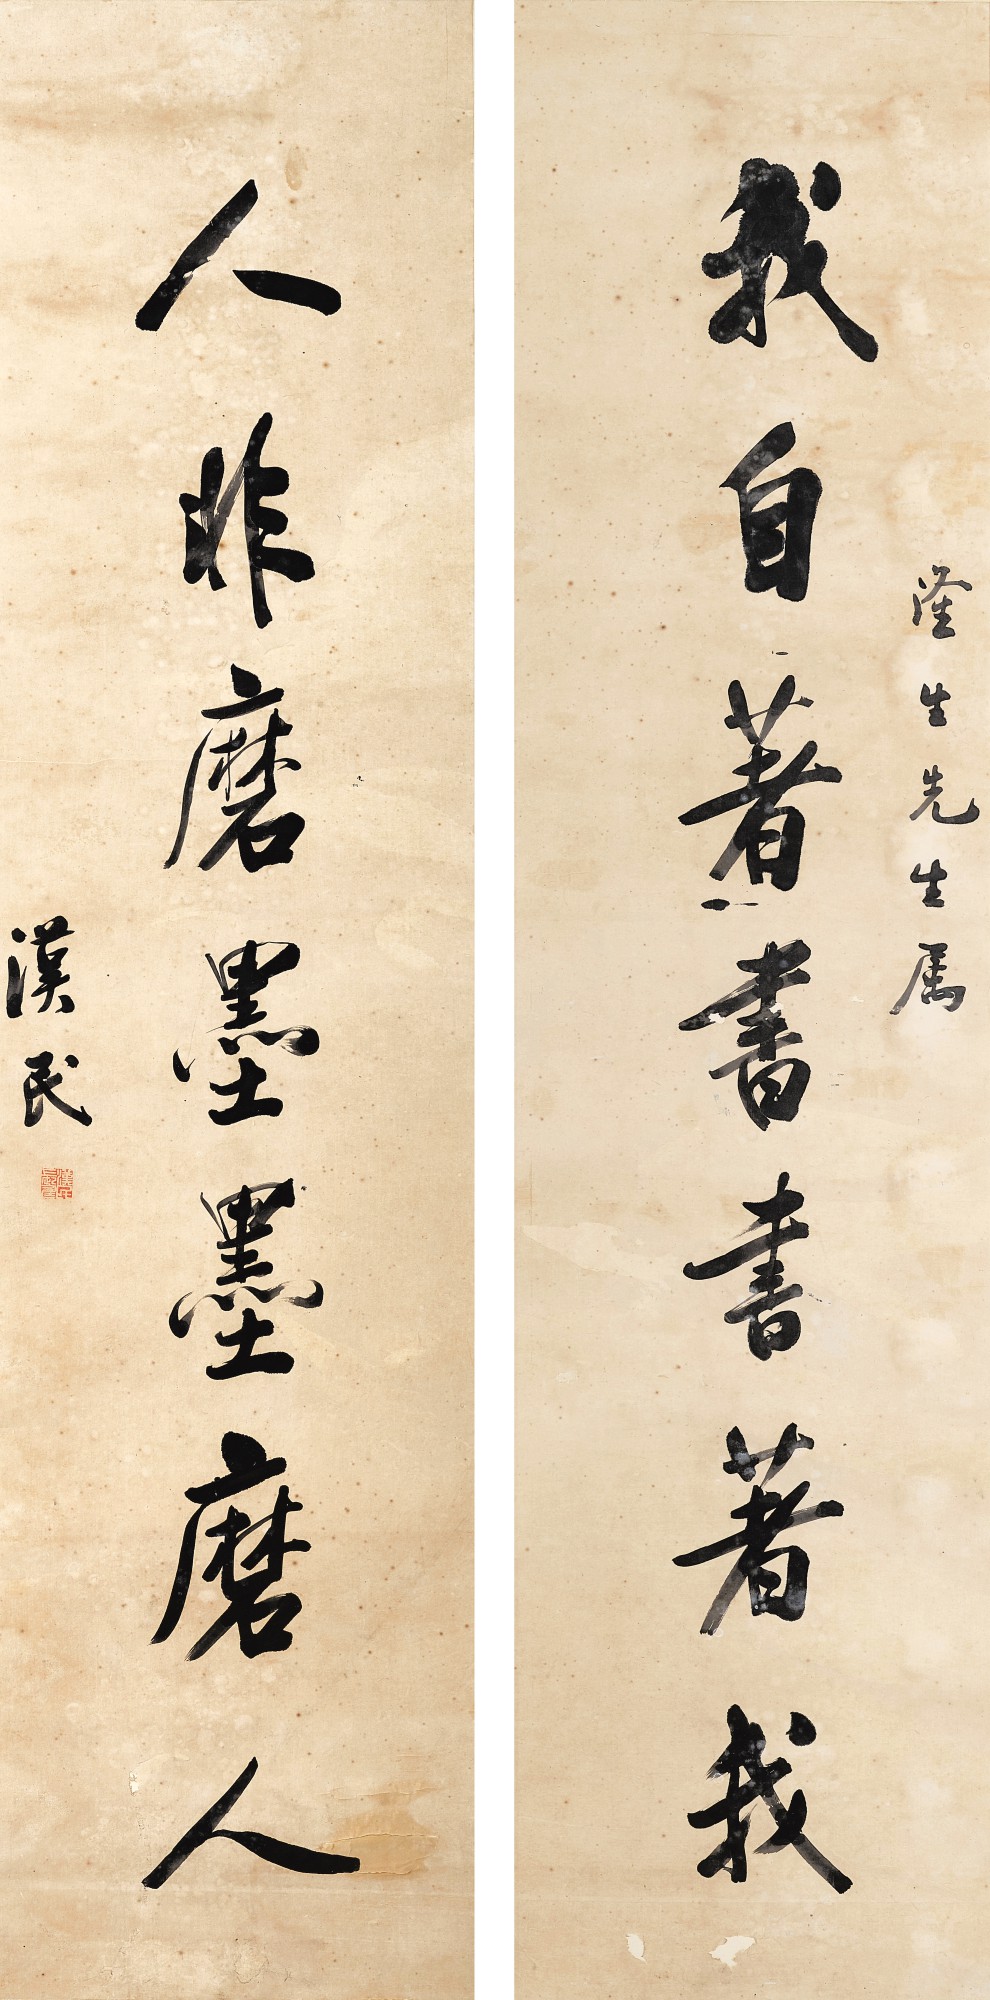 我自著書書著我
隆生先生屬
人非磨墨墨磨人
漢民